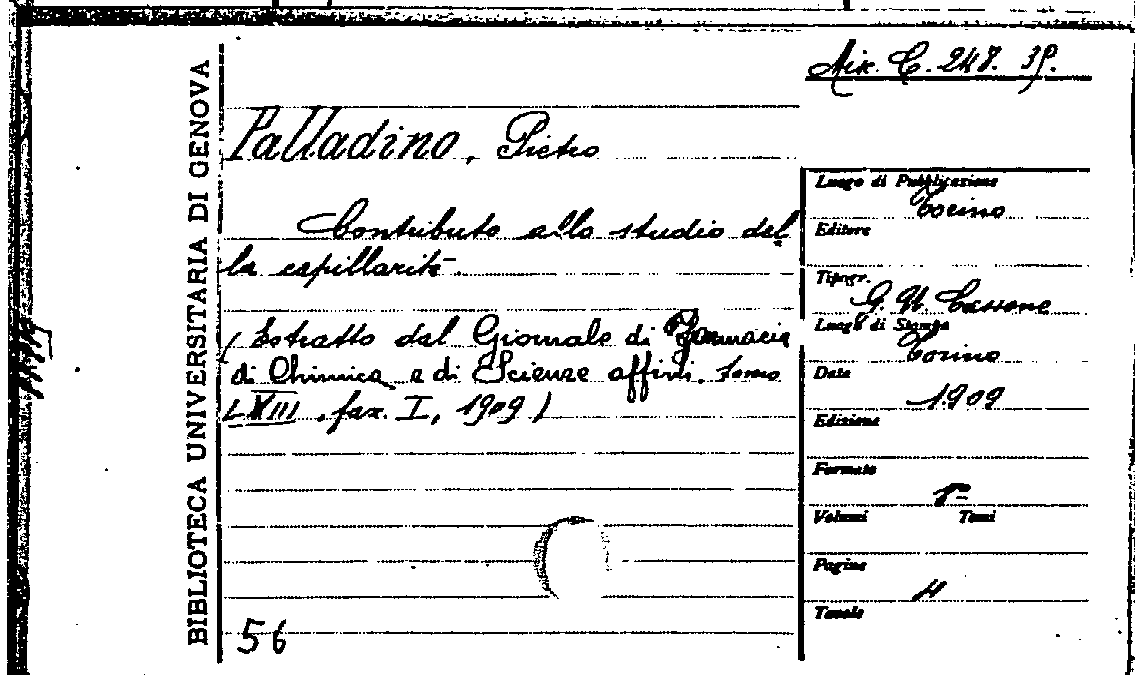 BIBLIOTECA UNIVERSITARIA DI GENOVA
Mix. C. 247. 39.
Palladino, Pietro
Contributo allo studio del
la capillarità.
(Estratto dal Giornale di Farmacia
di Chimica e di Scienze affini. tomo
LVIII, fax. I, 1909)
56
Luogo di Pubblicazione
Torino
Editore
Tipogr.
G. U. Cassone
Luogo di Stampa
Torino
Data
1909
Edizione
Formato
8°
Volumi Tomi
Pagine
Tavole